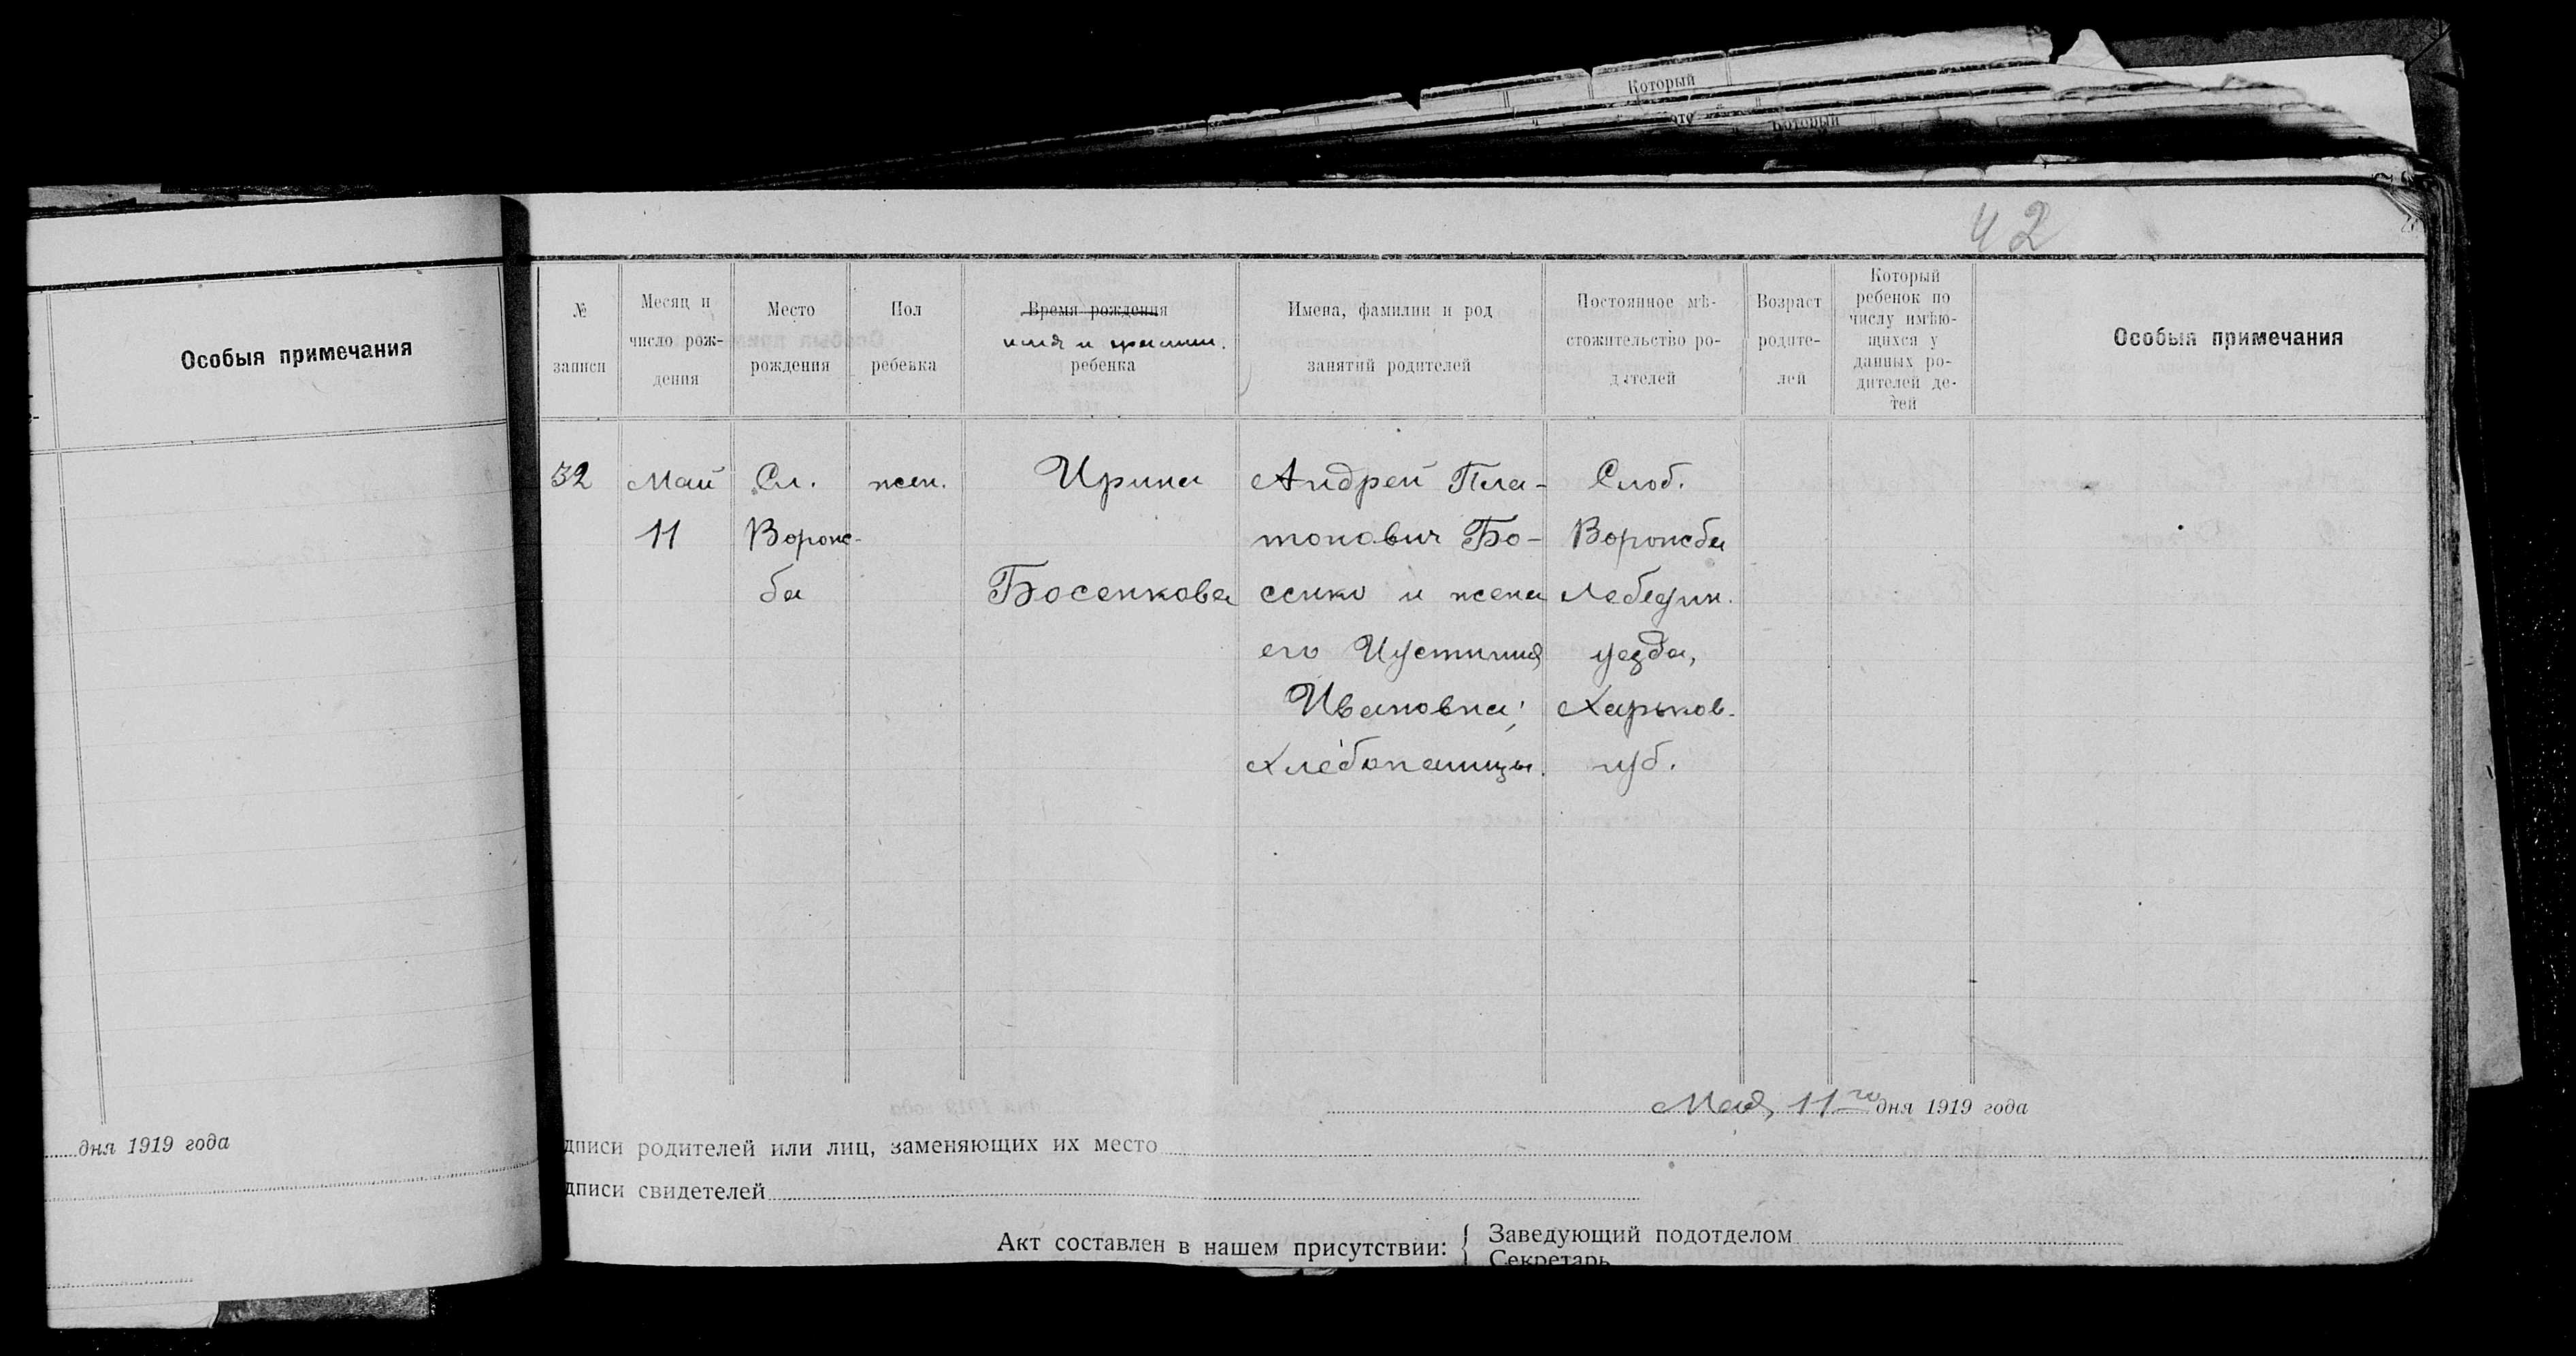 Который
Который
42
Особыя примечания
дня 1919 года
№ записи
Месяц и число рож-дения
Место рождения
Пол ребенка
Время рождения
имя и фамили.
ребенка
Имена, фамилии и род занятий родителей
Постоянное мѣ-стожительство ро-дителей
Возраст родите-лей
Который ребенок по числу имѣю-щихся у данных ро-дителей де-тей
Особыя примечания
32 Май Сл. жен. Ирина Андрей Пла- Слоб.
11 Ворож- тонович Бо- Ворожба
ба Босенкова сенко и жена Лебедин.
его Иустиния уезда,
Ивановна; Харьков.
Хлебопашцы. губ.
Мая 11го дня 1919 года
дписи родителей или лиц, заменяющих их место
дписи свидетелей
Акт составлен в нашем присутствии: { Заведующий подотделом
Секретарь